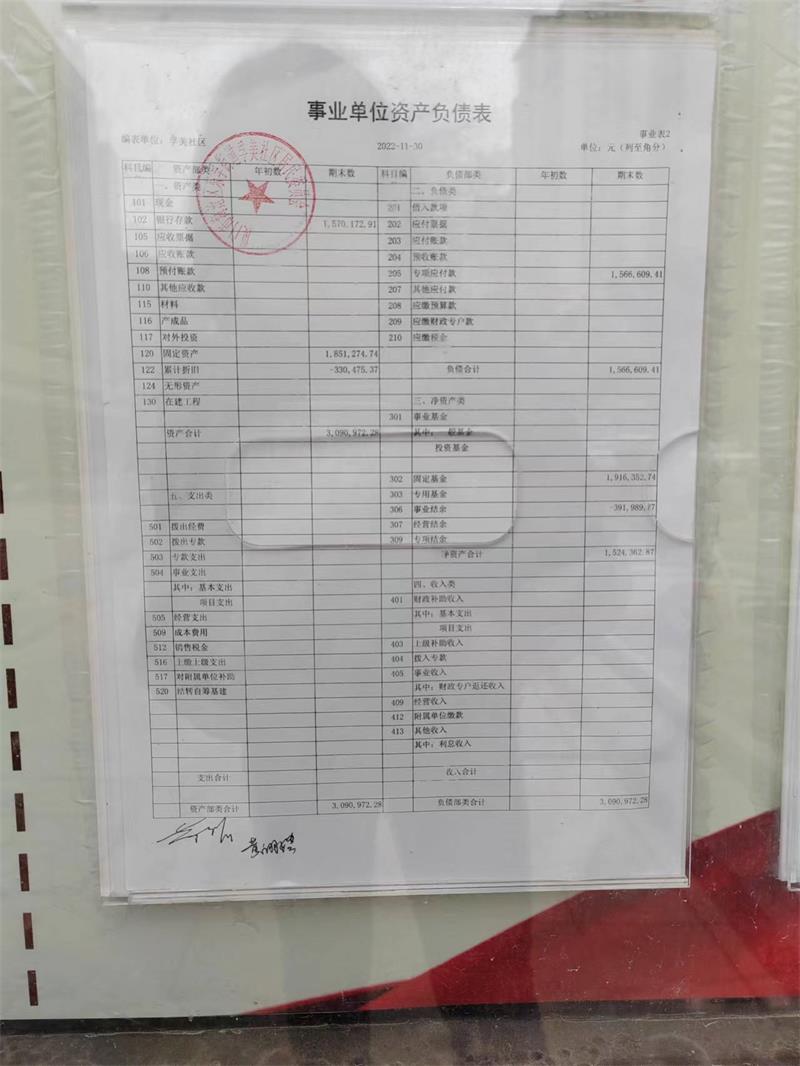 事业单位资产负债表
事业表2
编表单位：学美社区 2022-11-30 单位：元（列至角分）
科目编 资产部类 年初数 期末数 科目编 负债部类 年初数 期末数
一、资产类 二、负债类
101 现金 201 借入款项
102 银行存款 1,570,172.91 202 应付票据
105 应收票据 203 应付账款
106 应收账款 204 预收账款
108 预付账款 205 专项应付款 1,566,609.41
110 其他应收款 207 其他应付款
115 材料 208 应缴预算款
116 产成品 209 应缴财政专户款
117 对外投资 210 应缴税金
120 固定资产 1,851,274.74
122 累计折旧 -330,475.37 负债合计 1,566,609.41
124 无形资产
130 在建工程 三、净资产类
301 事业基金
资产合计 3,090,972.28 其中：一般基金
投资基金
302 固定基金 1,916,352.74
五、支出类 303 专用基金
306 事业结余 -391,989.87
501 拨出经费 307 经营结余
502 拨出专款 309 专项结余
503 专款支出 净资产合计 1,524,362.87
504 事业支出
其中：基本支出 四、收入类
项目支出 401 财政补助收入
505 经营支出 其中：基本支出
509 成本费用 项目支出
512 销售税金 403 上级补助收入
516 上缴上级支出 404 拨入专款
517 对附属单位补助 405 事业收入
520 结转自筹基建 其中：财政专户返还收入
409 经营收入
412 附属单位缴款
413 其他收入
其中：利息收入
支出合计 收入合计
资产部类合计 3,090,972.28 负债部类合计 3,090,972.28